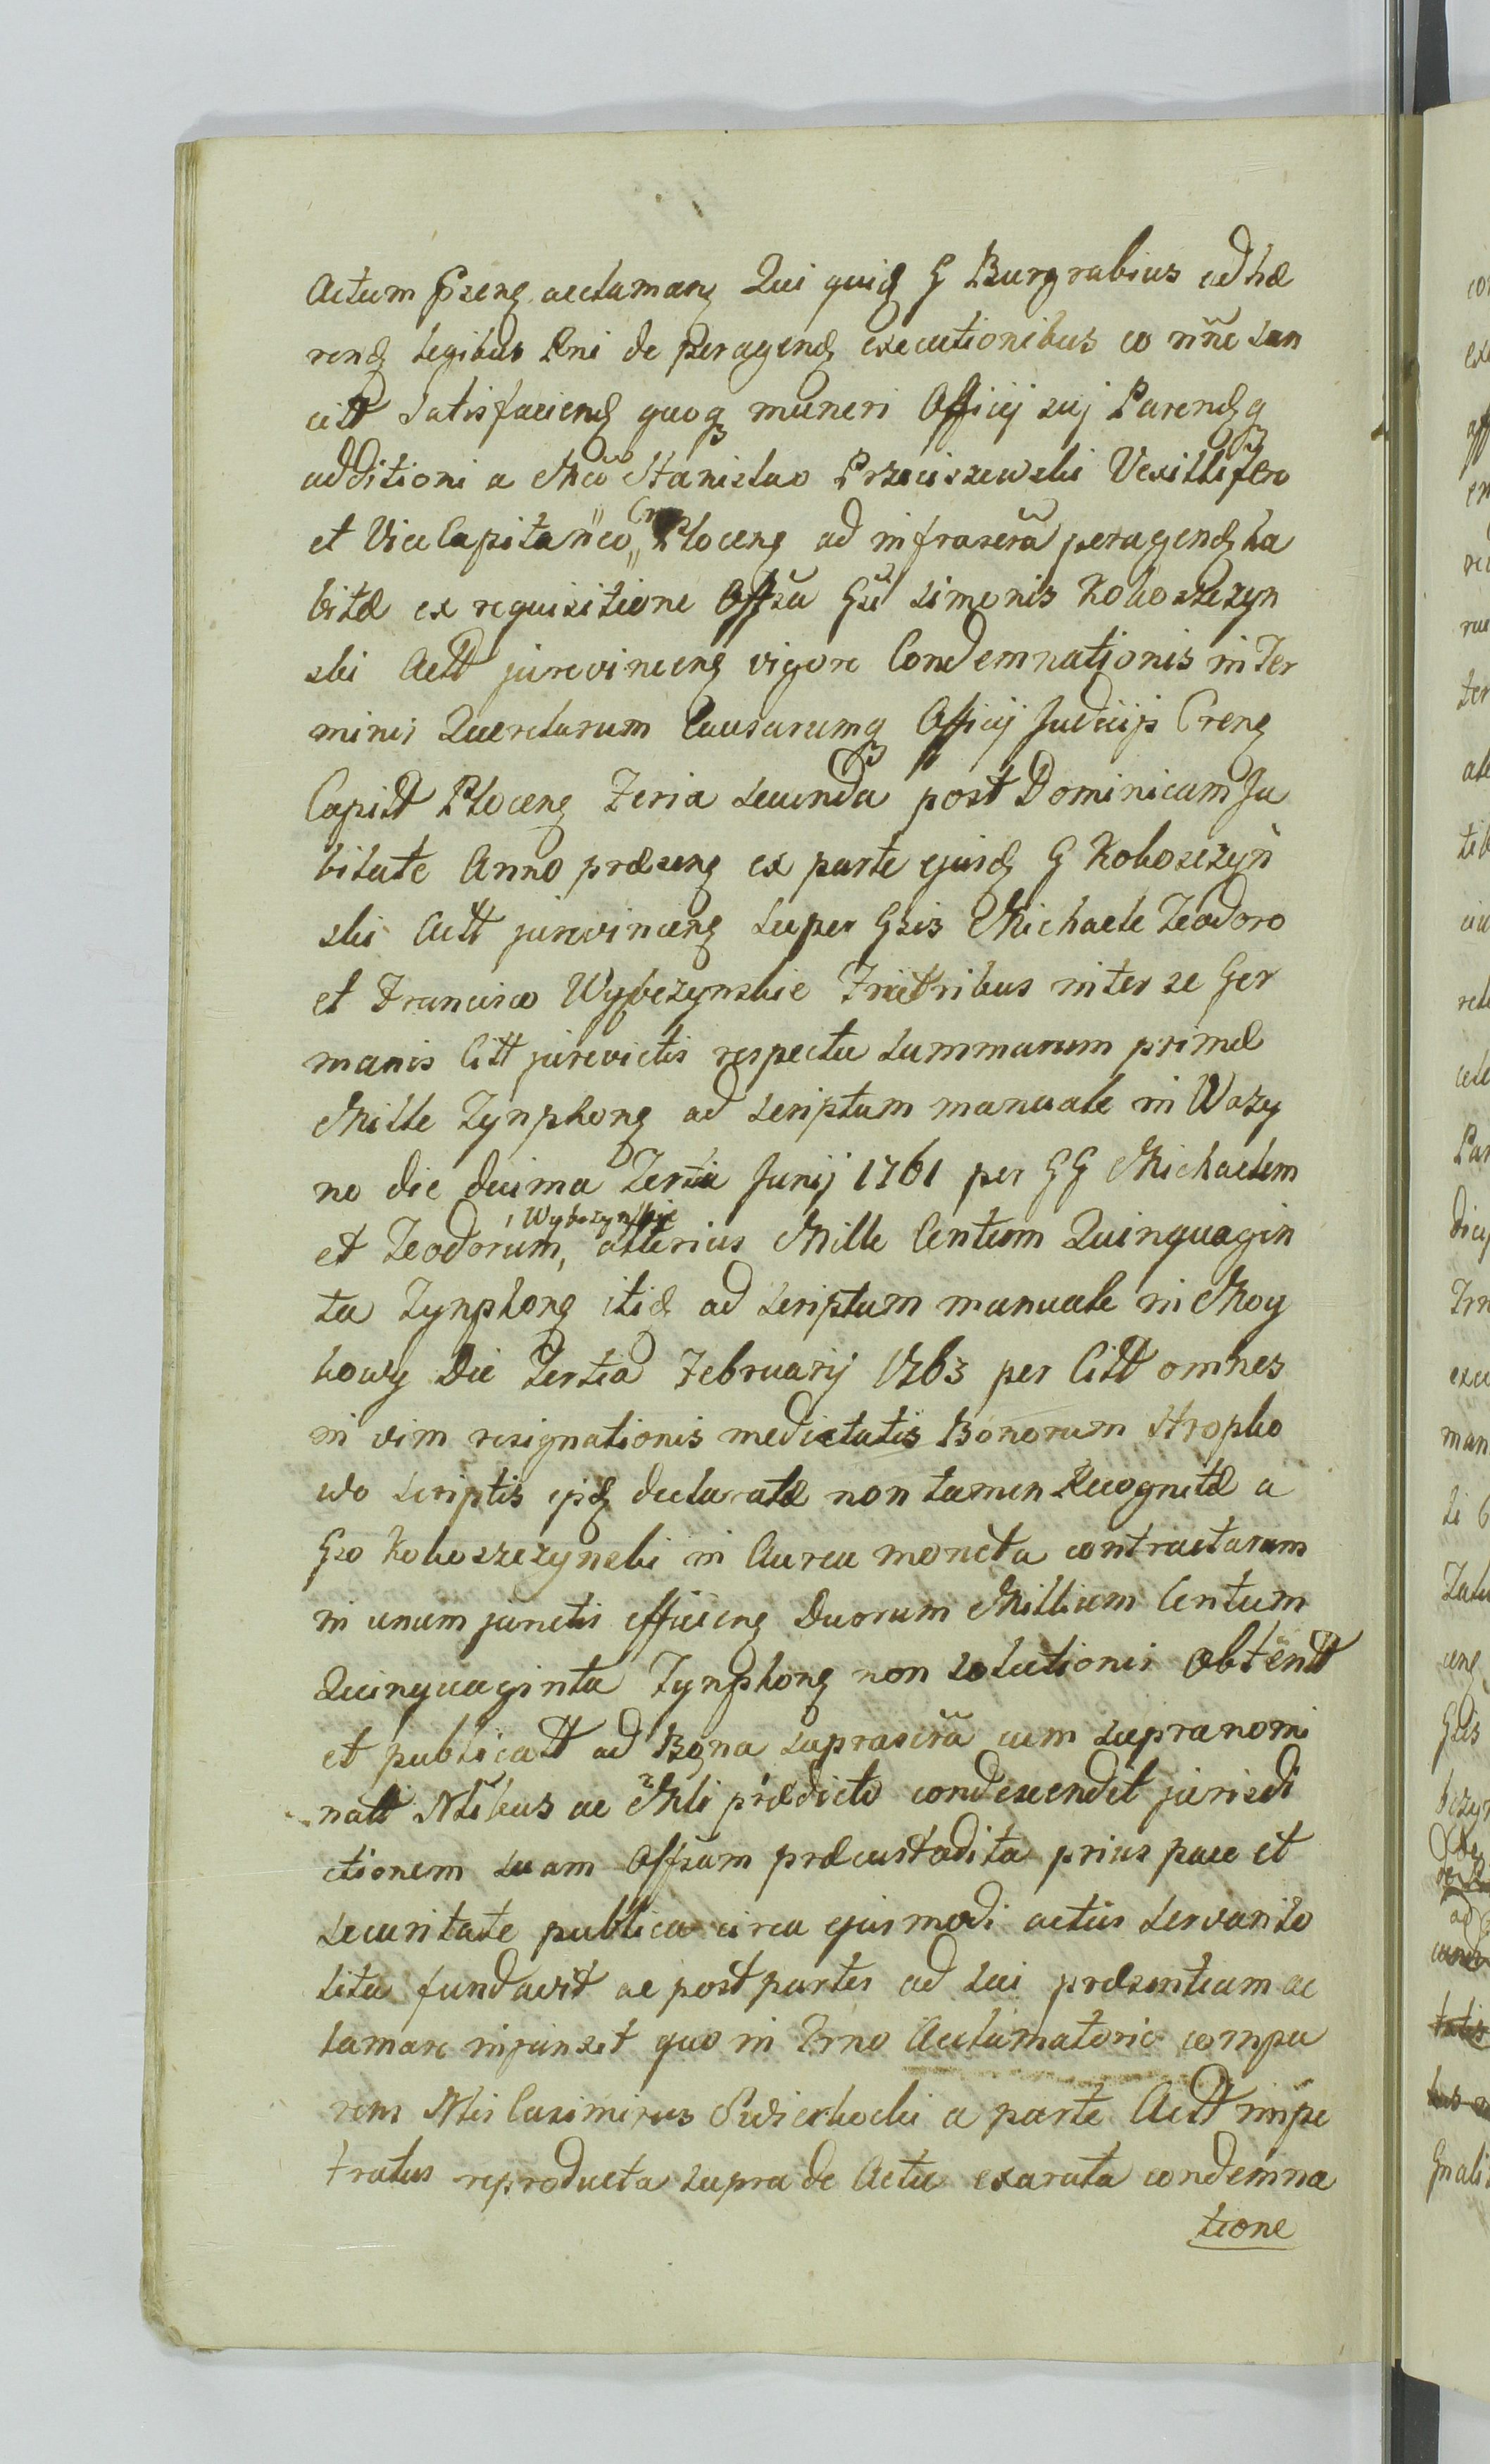 Actum Pseng acclamang Qui quid G Burgrabius adhæ
rend Legibus Rni de peragend executionibus eo nñe san
citt Satisfaciend quoq muneri Officij suj Parendq
additioni a Mco Stanislao Przeciszewski Vexillifero
et ViceCapitaneo Cr Ploceng ad infrascrã peragend ha
bitæ ex requisitione Offsa Gsi Simonis Koboszczyn
ski Actt jurevinceng vigore Condemnationis in Ter
minis Querelarum Causarumq Officij Judicijs Creng
Capitt Ploceng Feria Secunda post Dominicam Ju
bilate Anno præseng ex parte ejusd G Koboszczyń
ski Actt jurevinceng super Gsis Michaele Teodoro
et Francisco Wybczynskie Fratribus inter se Ger
manis Citt jurevictis respectu summarum primæ
Mille Tynphong ad scriptum manuale in Wazy
no die decima Tertia Junij 1761 per GG Michaelem
et Teodorum, Wybczynskie alterius Mille Centum Quinquagin
ta Tynphong itid ad scriptum manuale in Moy
kowy Die Tertia Februarij 1763 per Citt omnes
in vim resignationis medietatis Bonorum Stropko
wo scriptis ipsd declaratæ non tamen Recognitæ a
Gso Koboszczynski in Aurea moneta contractarum
in unum junctis efficieng Duorum Millium Centum
Quinquaginta Tynphong non solutionis Obtentt
et publicatt ad Bona suprascrã cum supranomi
natt Ntibus ac Mli prædicto condescendit jurisdi
ctionem suam Offsam præcustodita prius pace et
securitate publica circa ejusmodi actus servari so
lita fundavit ac post partes ad sui præsentiam ac
lamare injunxit quo in Trno Acclamatorio compa
rens Nlis Casimirus Swierkocki a parte Actt impe
tratus reproducta supra de Actu exarata condemna
tione